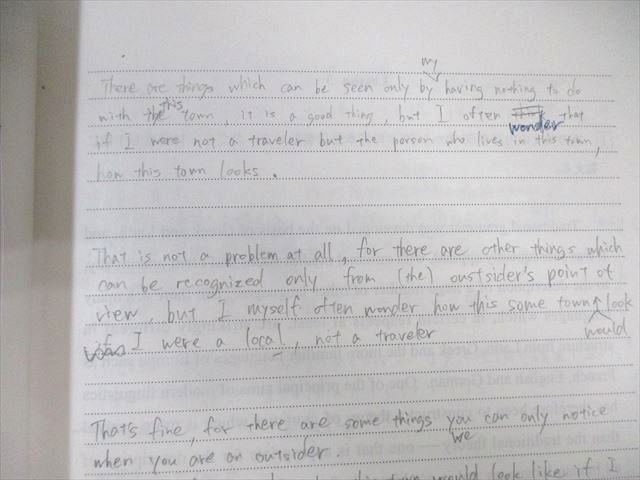 my
There are things which can be seen only by having nothing to do
with the this town, it is a good thing, but I often think that
wonder
if I were not a traveler but the person who lives in this town,
how this town looks.
That is not a problem at all, for there are other things which
can be recognized only from (the) oustsider's point of
view, but I myself often wonder how this same town look
would
if I were a local, not a traveler
That's fine, for there are some things you can only notice
we
when you are an outsider.
would look like if I
French, English and German. One of the principal aims of modern linguistics
tion the traditional theory